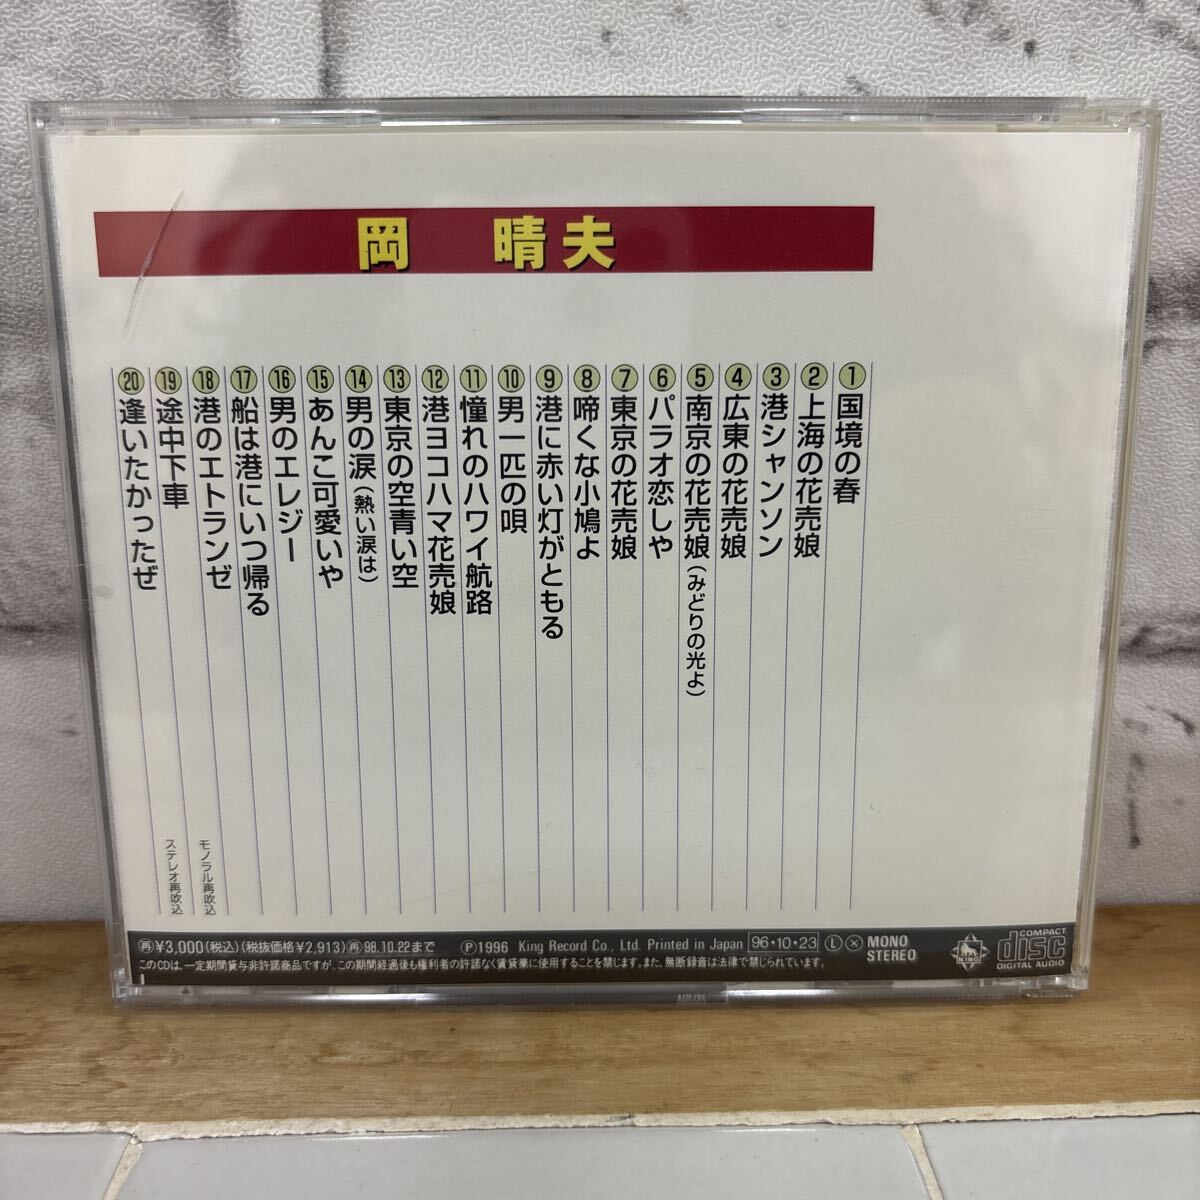 岡 晴夫
①国境の春
②上海の花売娘
③港シャンソン
④広東の花売娘
⑤南京の花売娘(みどりの光よ)
⑥パラオ恋しや
⑦東京の花売娘
⑧啼くな小鳩よ
⑨港に赤い灯がともる
⑩男一匹の唄
⑪憧れのハワイ航路
⑫港ヨコハマ花売娘
⑬東京の空青い空
⑭男の涙(熱い涙は)
⑮あんこ可愛いや
⑯男のエレジー
⑰船は港にいつ帰る
⑱港のエトランゼ モノラル再吹込
⑲途中下車 ステレオ再吹込
⑳逢いたかったぜ
再¥3,000(税込)(税抜価格¥2,913)再98.10.22まで Ⓟ1996 King Record Co., Ltd. Printed in Japan 96・10・23 Ⓛ Ⓧ MONO STEREO
このCDは、一定期間貸与非許諾商品ですが、この期間経過後も権利者の許諾なく賃貸業に使用することを禁じます。また、無断録音は法律で禁じられています。
KING
COMPACT disc DIGITAL AUDIO